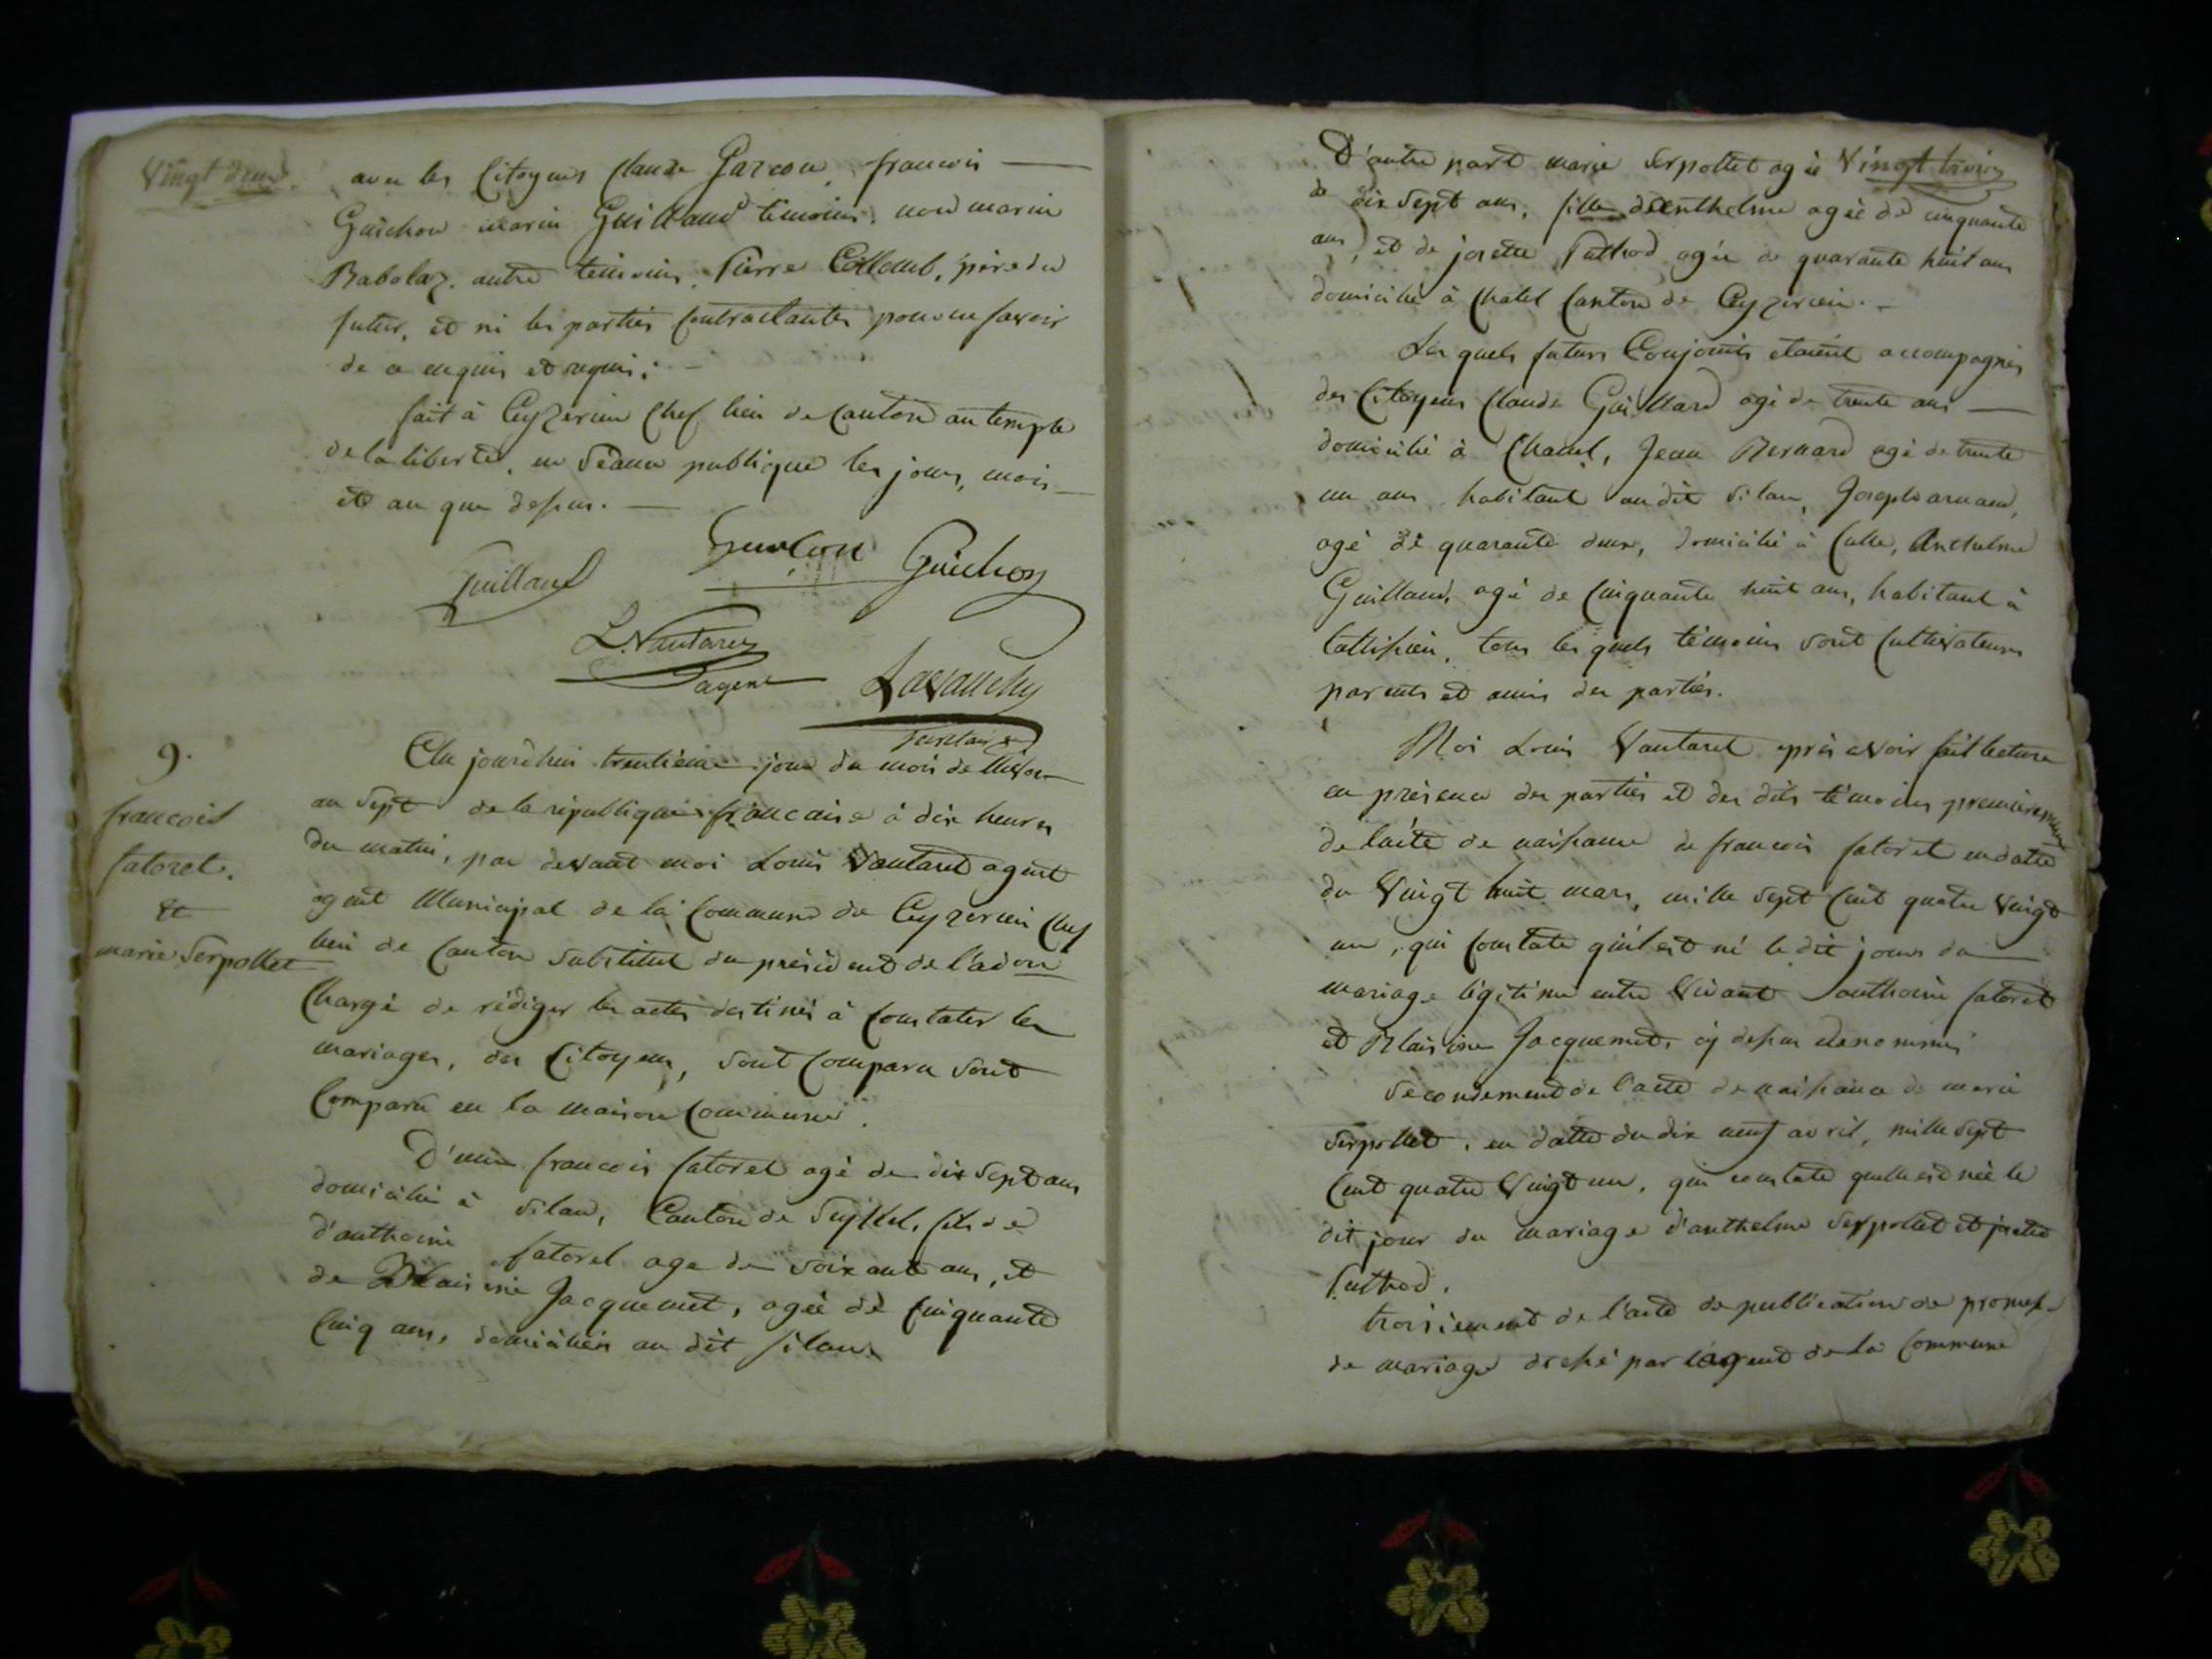 Vingt deux.
avec les Citoyens Claude Garcon, francois
Guichon marin Guilland témoins, non marin
Rabolaz, autre témoins, Pierre Collomb, père du
futur, et ni les parties Contractantes pour ne savoir
de ce enquis et requis;
fait à Ceyzerieu Chef lieu de Canton au temple
de la liberté, en Séance publique les jours, mois
et an que dessus.
Guilland Garcon Guichon
L. Vautaret
agent
Lavanchy
secretaire
9.
francois
fatoret.
&
marie Serpollet
Cejourd'hui trentième jour du mois de Nivose
an Sept de la république francaise à dix heures
du matin, par devant moi Louis Vautaret agent
agent Municipal de la Commune de Ceyzerieu Chef
lieu de Canton Substitut du président de l'adon
Chargé de rédiger les actes destinés à Constater les
mariages, des Citoyens, sont Comparu sont
Comparu en la maison Commune.
D'une francois fatoret agé de dix Sept ans
domicilié à Silan, Canton de Seyssel, fils de
d'anthoine fatoret age de soixante ans, et
de Blaisine Jacquemet, agée de Cinquante
Cinq ans, domiciliés au dit Silan
Vingt trois
D'autre part marie Serpollet agée
de dix Sept ans, fille d'enthelme agée de cinquante
ans, et de josette Puthod agée de quarante huit ans
domicilié à Chatel Canton de Ceyzerieu.
Les quels futurs Conjoints étaient accompagnés
des Citoyens Claude Guillard agé de trente ans
domicilié à Chatel, Jean Bernard agé de trente
un ans habitant au dit Silan, Joseph arnaud,
agé de quarante deux, domicilié à Culle, Anthelme
Guilland, agé de Cinquante huit ans, habitant à
tous les quels témoins sont Cultivateurs
parents et amis des parties.
Moi Louis Vautaret après avoir fait lecture
en présence des parties et des dits témoins premierement
de l'acte de naissance de francois fatoret en datte
du Vingt huit mars, mille Sept Cent quatre Vingt
un, qui Constate qu'il est né le dit jour du
mariage légitime entre Vivant anthoine fatoret
et Blaisine Jacquemet, cy dessus dénommés
Secondement de l'acte de naissance de marie
Serpollet, en datte du dix neuf avril, mille Sept
Cent quatre Vingt un, qui constate quelle est née le
dit jour du mariage d'anthelme Serpollet et josette
Puthod.
troisiement de l'acte de publication de promesse
de mariage dressé par l'agent de la Commune